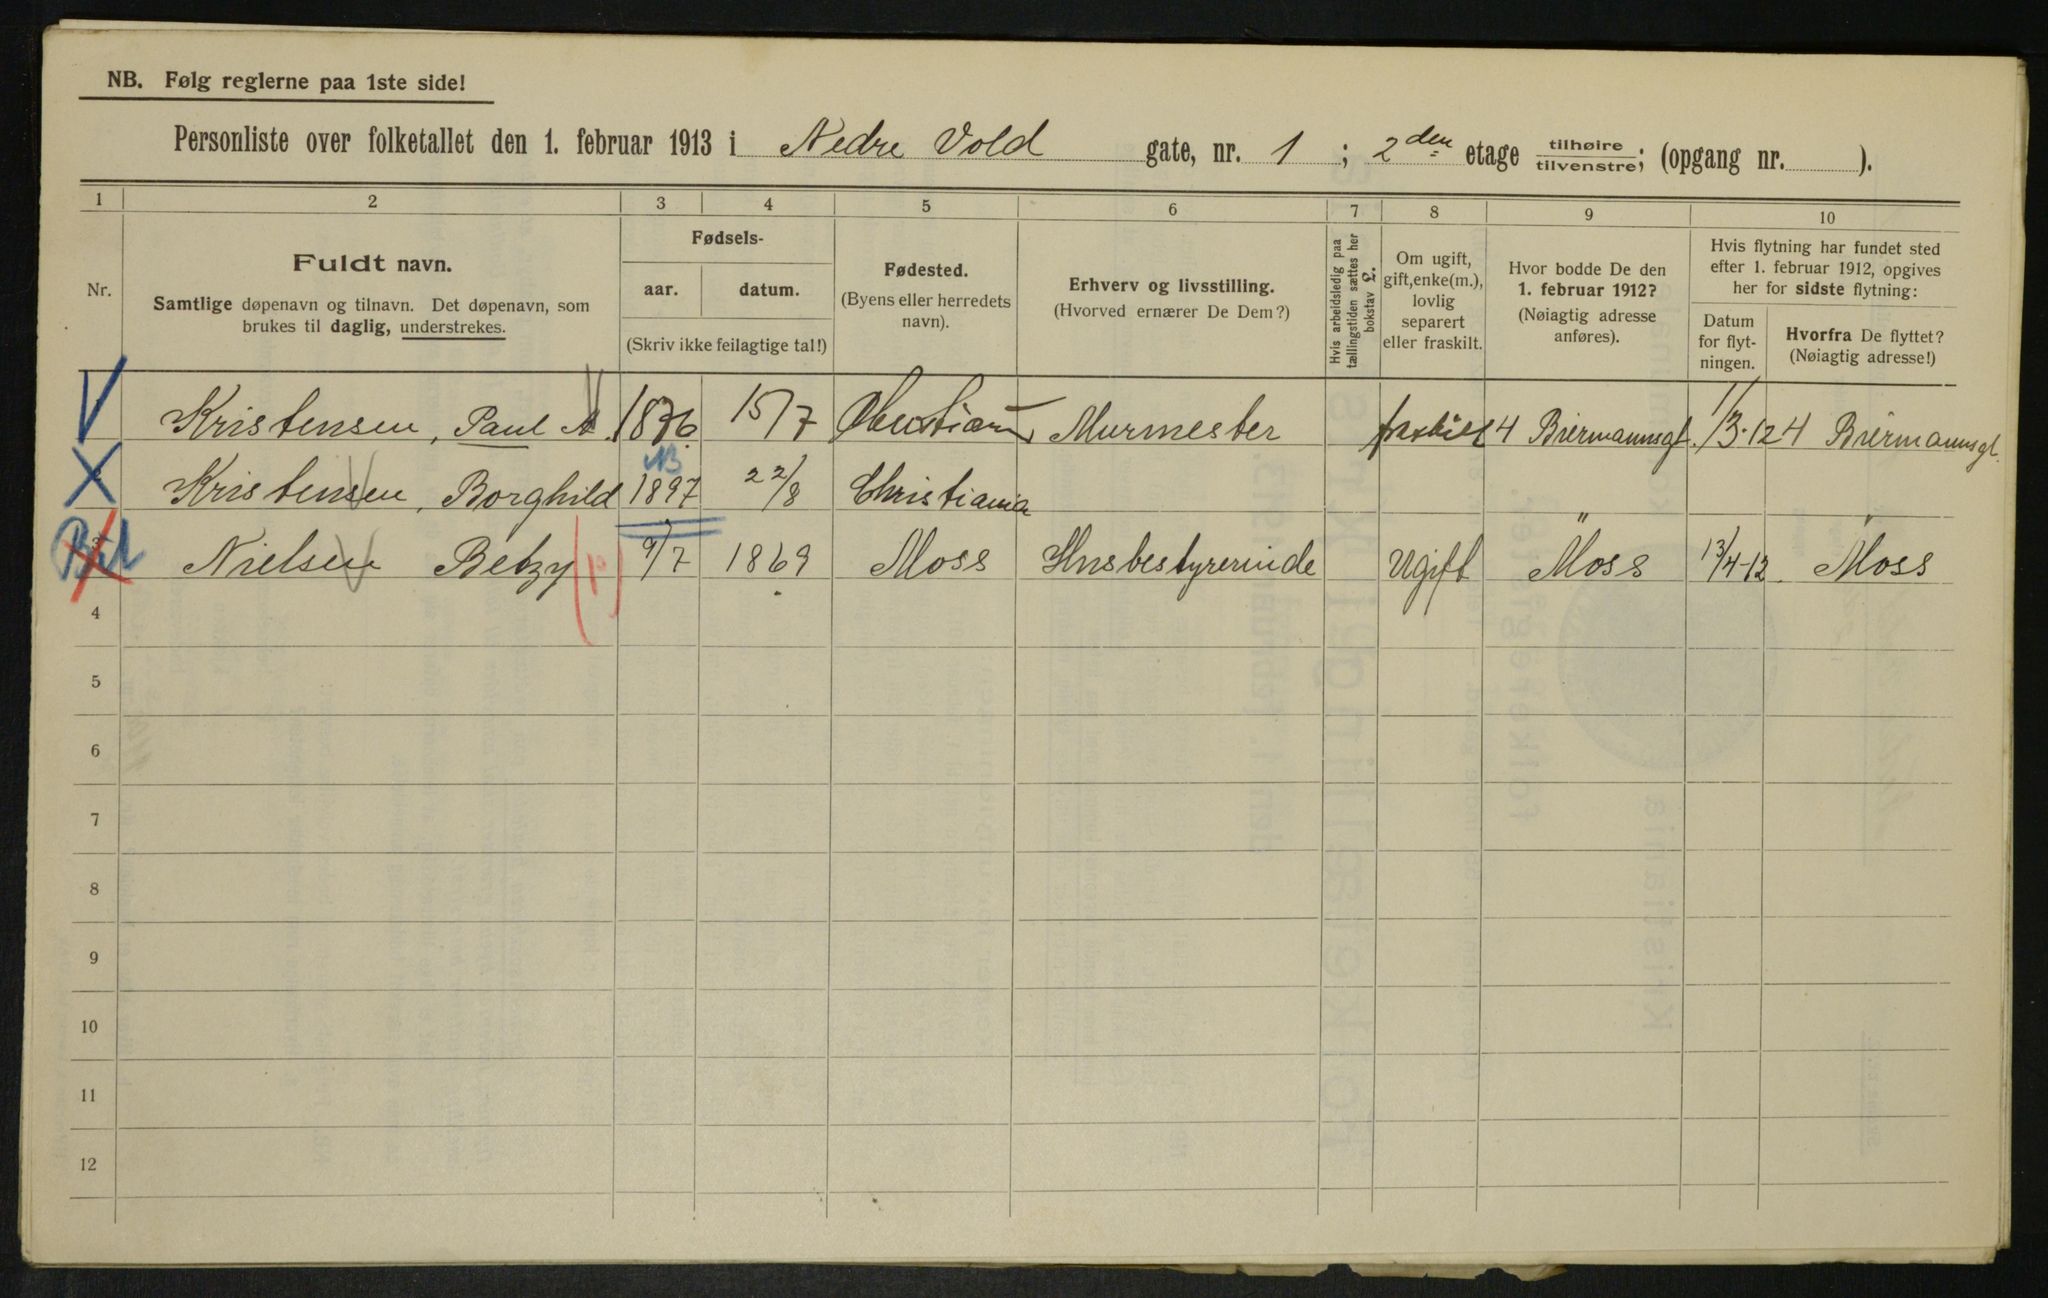 NB. Følg reglerne paa 1ste side!
Personliste over folketallet den 1. februar 1913 i Nedre Vold gate, nr. 1 ; 2den etage tilhøire tilvenstre; (opgang nr. ).
1 2 3 4 5 6 7 8 9 10
Nr.
Fuldt navn.
Samtlige døpenavn og tilnavn. Det døpenavn, som
brukes til daglig, understrekes.
Fødsels-
aar. datum.
(Skriv ikke feilagtige tal!)
Fødested.
(Byens eller herredets
navn).
Erhverv og livsstilling.
(Hvorved ernærer De Dem?)
Hvis arbeidsledig paa
tællingstiden sættes her
bokstav L.
Om ugift,
gift, enke(m.),
lovlig
separert
eller fraskilt.
Hvor bodde De den
1. februar 1912?
(Nøiagtig adresse
anføres).
Hvis flytning har fundet sted
efter 1. februar 1912, opgives
her for sidste flytning:
Datum
for flyt-
ningen.
Hvorfra De flyttet?
(Nøiagtig adresse!)
Kristensen, Paul A. 1876 15/7 Murmester fraskilt 4 Biermannsgt. 1/3-12 4 Biermannsgt.
NB
Kristensen, Borghild 1897 22/8 Christiania
3 Nielsen Betzy 9/7 1869 Moss Husbestyrerinde Ugift Moss 13/4-12 Moss
4
5
6
7
8
9
10
11
12